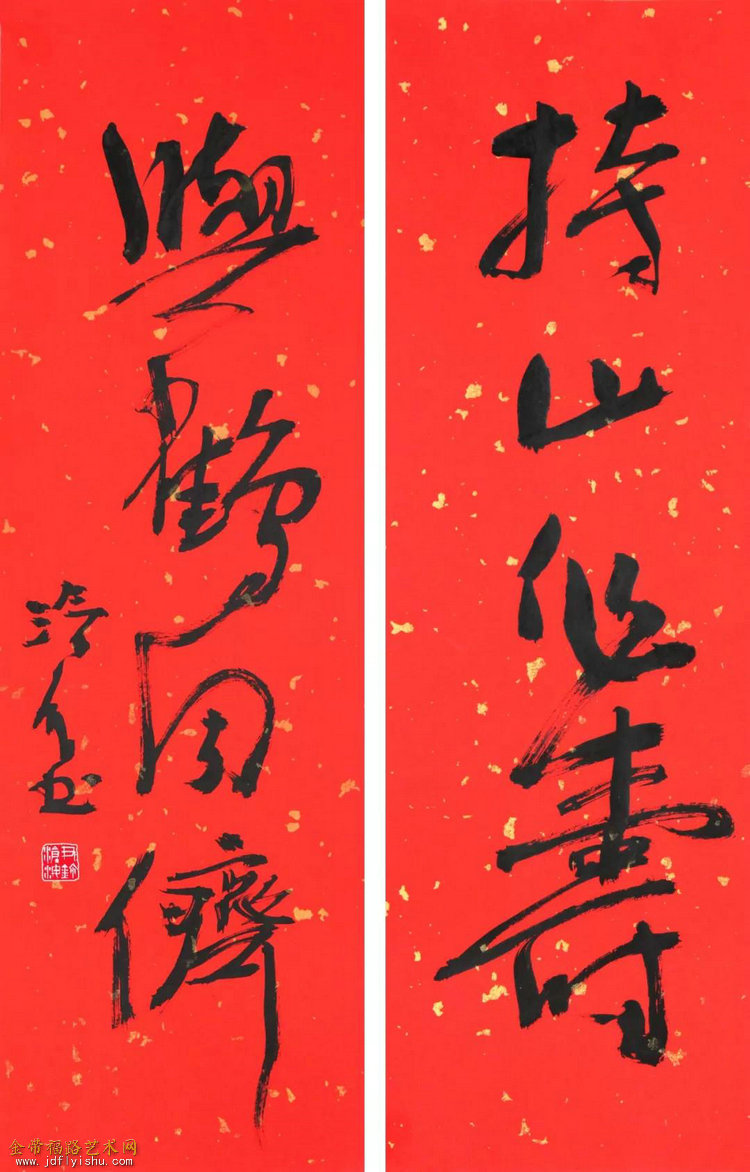 持山作壽
與鶴同儕
金带福路艺术网
www.jdflyishu.com